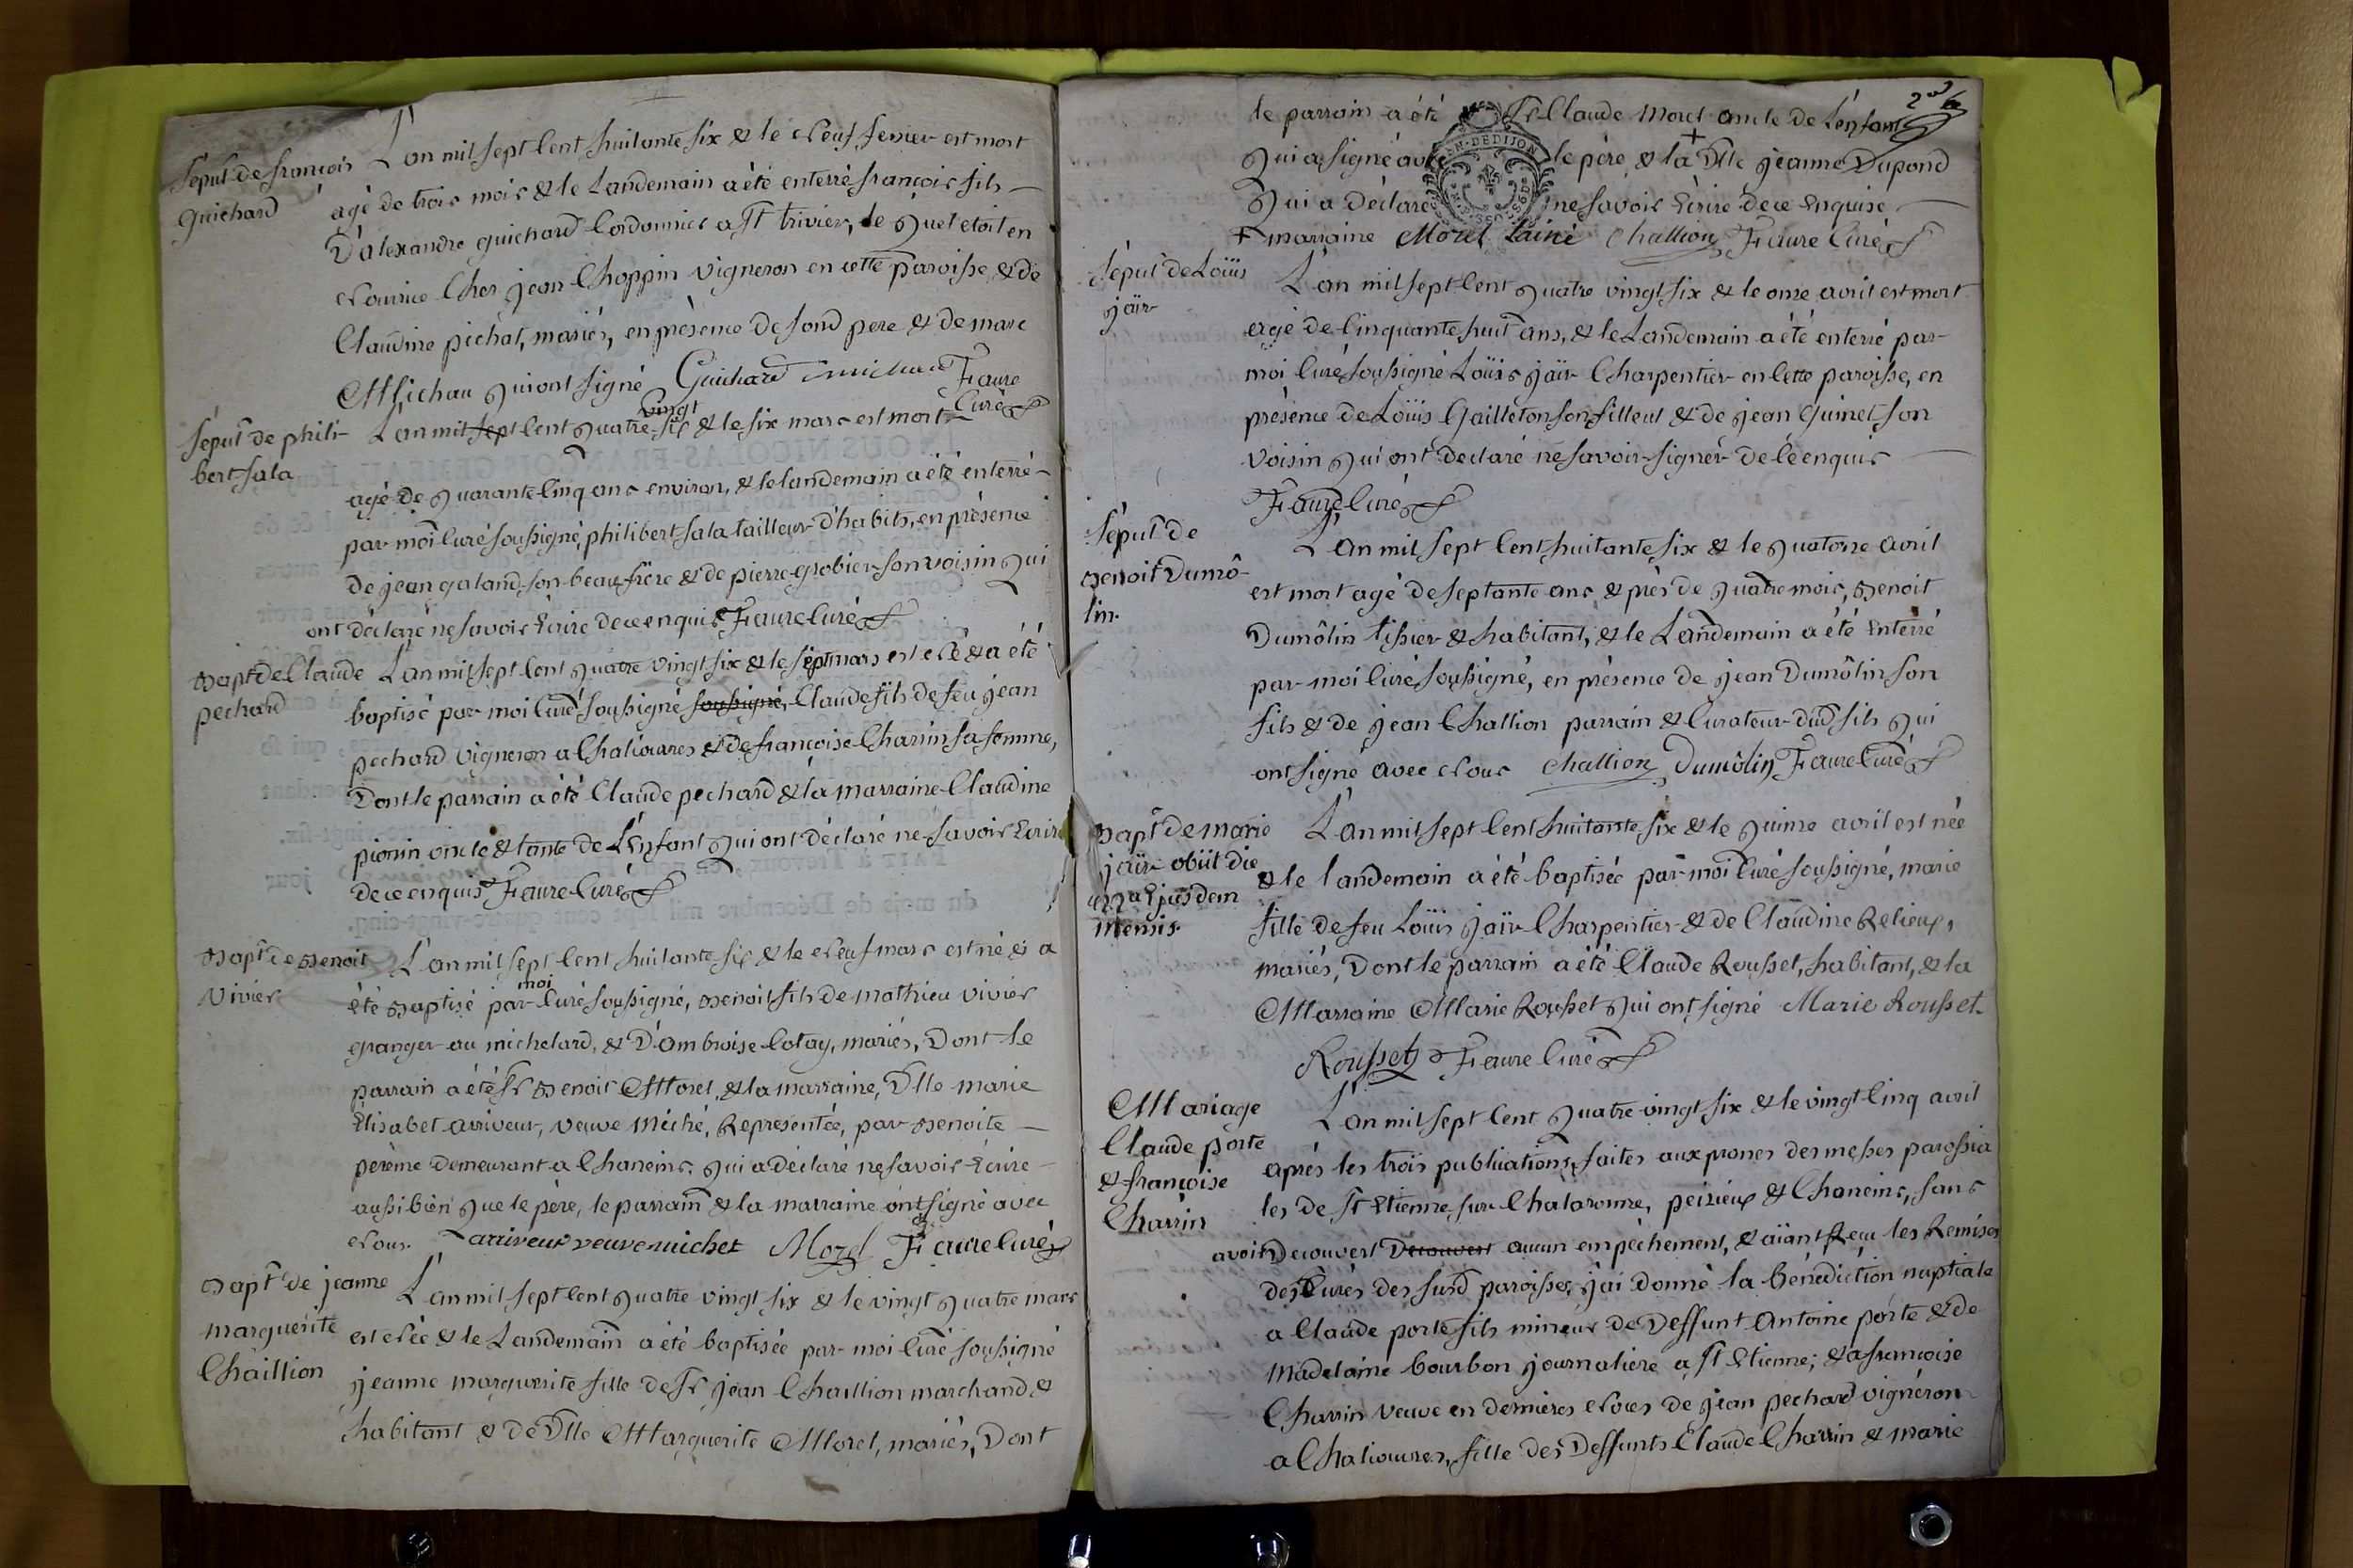 Sépul de françois
guichard
L'an mil sept Cent huitante six & le Neuf fevrier est mort
agé de trois mois & le Landemain a été enterré françois fils
D'alexandre guichard Cordonnier a St trivier, le quel etoit en
Nourrice Chez jean Choppin vigneron en cette paroisse & de
Claudine pichat, mariés, en présence de son d pere & de marc
Michau qui ont signé Guichard michau Faure
Curé
Sépul de phili-
bert sala
vingt
L'an mil sept Cent quatre six & le six mars est mort
agé de quarante cinq ans environ, & le landemain a été enterré
par moi Curé soussigné, philibert sala tailleur d'habits, en présence
de jean galand son beaufrere & de pierre grobier son voisin qui
ont déclaré ne savoir Ecrire de ce enquis Faure Curé
Bapt de Claude
pechard
L'an mil sept Cent quatre vingt six & le sept mars est Né & a été
baptisé par moi Curé soussigné soussigné, Claude fils de feu jean
pechard vigneron a Chaliouvres & de françoise Charrin sa femme,
Dont le parrain a été Claude pechard & la marraine Claudine
pionin oncle & tante de L'Enfant qui ont déclaré ne savoir Ecrire
de ce enquis Faure Curé
Bapt de Benoit
Vivier
L'an mil sept Cent huitante six & le Neuf mars est né & a
moi
été Baptisé par Curé soussigné, Benoit fils de mathieu vivier
granger au michelard, & D'ambroise Cotay, mariés, Dont le
parrain a été Sr Benoit Morel, & la marraine, Dlle marie
Elisabet arriveur, veuve Miché, Representée, par Benoite
peréme demeurant a Chaneins. qui a déclaré ne savoir Ecrire
aussi bien que le père, le parrain & la marraine ont signé avec
Nous. arriveur veuve michet Morel Faure Curé
Bapt de jeanne
marguerite
Chaillion
L'an mil sept Cent quatre vingt six & le vingt quatre mars
est Née & le Landemain a été baptisée par moi Curé soussigné
jeanne marguerite fille de Sr jean Chaillion marchand &
habitant & de Dlle Marguerite Morel, mariés, Dont
le parrain a été Sr Claude Morel oncle de L'enfant
qui a signé avec le père, & la + Dlle jeanne Dupond
qui a Déclaré ne savoir Ecrire de ce Enquise
+ marraine Morel Lainé Challion Faure Curé
GEN. DE DIJON
Sépul de Loüis
jaïr
L'an mil sept Cent quatre vingt six & le onze avril est mort
agé de Cinquante huit ans, & le Landemain a été enterré par
moi Curé soussigné Loüis jaïr Charpentier en Cette paroisse, en
présence de Loüis Gailleton son filleul & de jean Guinet son
voisin qui ont declaré ne savoir signer de Cé enquis
Faure Curé
Sépul de
Benoit Dumô-
lin.
L'an mil sept Cent huitante six & le quatorze avril
est mort agé de septante ans & près de quatre mois, Benoit
Dumôlin tissier & habitant, & le Landemain a été Enterré
par moi Curé soussigné, en présence de jean Dumôlin son
fils & de jean Challion parrain & Curateur dud fils qui
ont signé avec Nous Challion Dumôlin Faure Curé
Bapt de marie
jaïr obiit die
Ejusdem
mensis.
L'an mil sept Cent huitante six & le quinze avril est née
& le landemain a été baptisée par moi Curé soussigné, marie
fille de feu Loüis jaïr Charpentier & de Claudine Relieux,
mariés, Dont le parrain a été Claude Rousset, habitant, & la
Marraine Marie Rousset qui ont signé Marie Rousset
Rousset Faure Curé
Mariage
Claude porte
& françoise
Charrin
L'an mil sept Cent quatre vingt six & le vingt Cinq avril
aprés les trois publications, faites aux prones des messes parossia
les de St Etienne sur Chalaronne, peizieux & Chaneins, sans
avoir Decouvert Decouvert aucun empêchement, & aiant Reçu les Remises
des Curés des susd paroisses, j'ai donné la bénédiction nuptiale
a Claude porte fils mineur de Deffunt Antoine porte & de
Madelaine bourbon journaliere a St Etienne; & a françoise
Charrin veuve en dernieres Noces de jean pechard vigneron
a Chaliouvres, fille des Deffunts Claude Charrin & marie